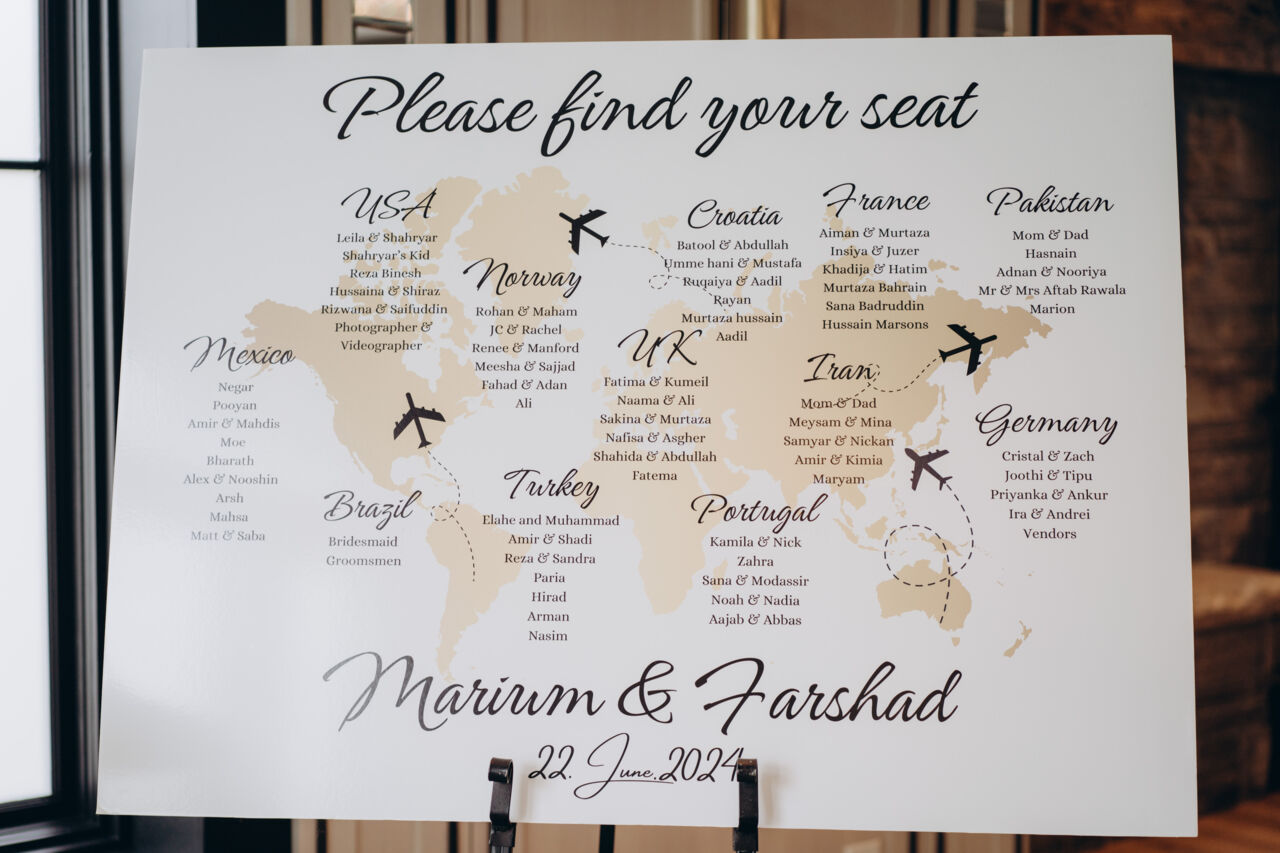 Please find your seat
USA
Leila & Shahryar
Shahryar's Kid
Reza Binesh
Hussaina & Shiraz
Rizwana & Saifuddin
Photographer &
Videographer
Norway
Rohan & Maham
JC & Rachel
Renee & Manford
Meesha & Sajjad
Fahad & Adan
Ali
Croatia
Batool & Abdullah
Umme hani & Mustafa
Ruqaiya & Aadil
Rayan
Murtaza hussain
Aadil
France
Aiman & Murtaza
Insiya & Juzer
Khadija & Hatim
Murtaza Bahrain
Sana Badruddin
Hussain Marsons
Pakistan
Mom & Dad
Hasnain
Adnan & Nooriya
Mr & Mrs Aftab Rawala
Marion
Mexico
Negar
Pooyan
Amir & Mahdis
Moe
Bharath
Alex & Nooshin
Arsh
Mahsa
Matt & Saba
UK
Fatima & Kumeil
Naama & Ali
Sakina & Murtaza
Nafisa & Asgher
Shahida & Abdullah
Fatema
Iran
Mom & Dad
Meysam & Mina
Samyar & Nickan
Amir & Kimia
Maryam
Germany
Cristal & Zach
Joothi & Tipu
Priyanka & Ankur
Ira & Andrei
Vendors
Brazil
Bridesmaid
Groomsmen
Turkey
Elahe and Muhammad
Amir & Shadi
Reza & Sandra
Paria
Hirad
Arman
Nasim
Portugal
Kamila & Nick
Zahra
Sana & Modassir
Noah & Nadia
Aajab & Abbas
Marium & Farshad
22. June.2024